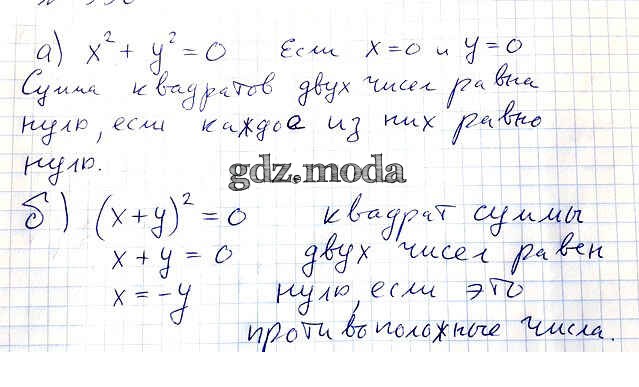 а) x² + y² = 0 Если x=0 и y=0
Сумма квадратов двух чисел равна
нулю, если каждое из них равно
нулю.
gdz.moda
б) (x+y)² = 0 квадрат суммы
x + y = 0 двух чисел равен
x = -y нулю, если это
противоположные числа.